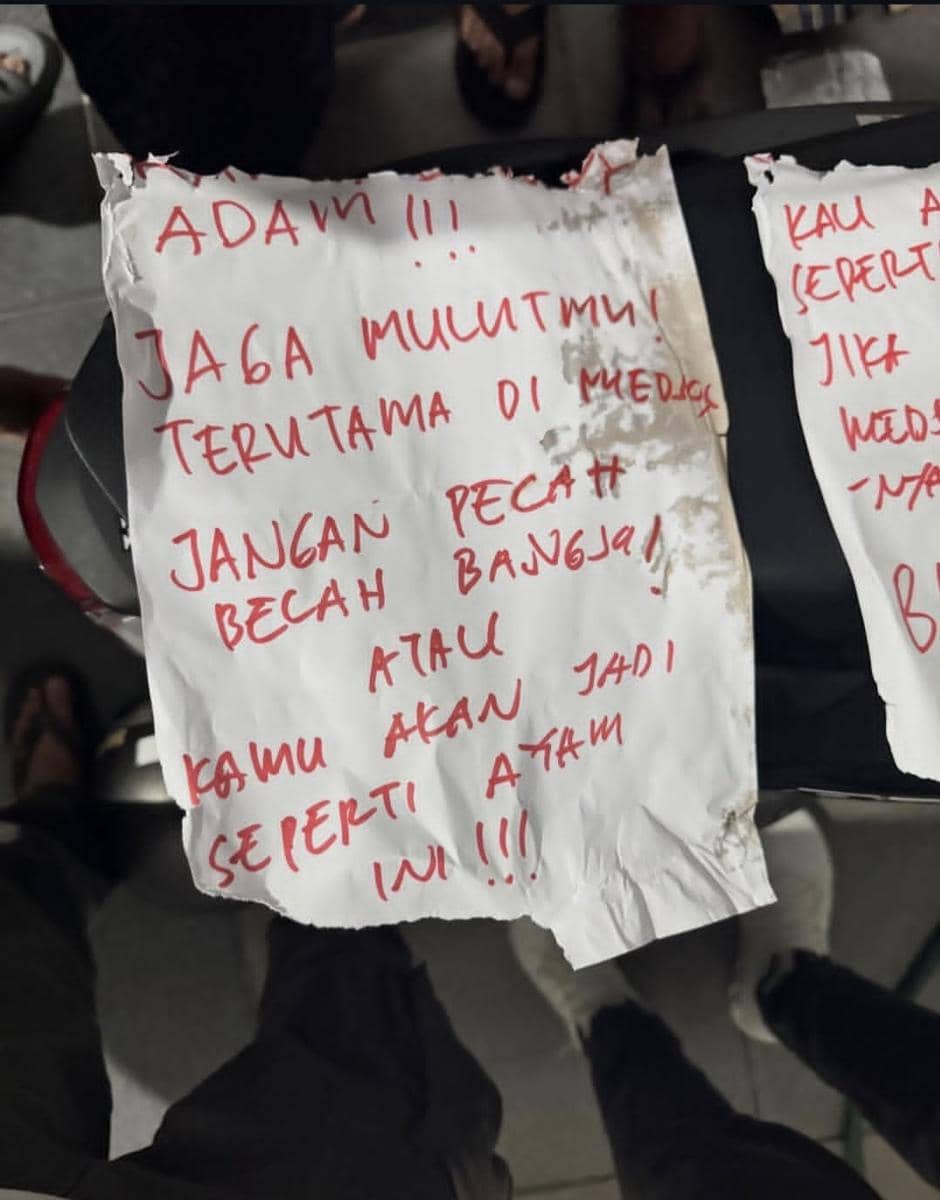 ADAM !!!
JAGA MULUTMU!
TERUTAMA DI MEDSOS
JANGAN PECAH
BECAH BANGSA!
ATAU
KAMU AKAN JADI
SEPERTI AYAM
INI !!!
KAU A
SEPERTI
JIKA
MEDS
-NYA